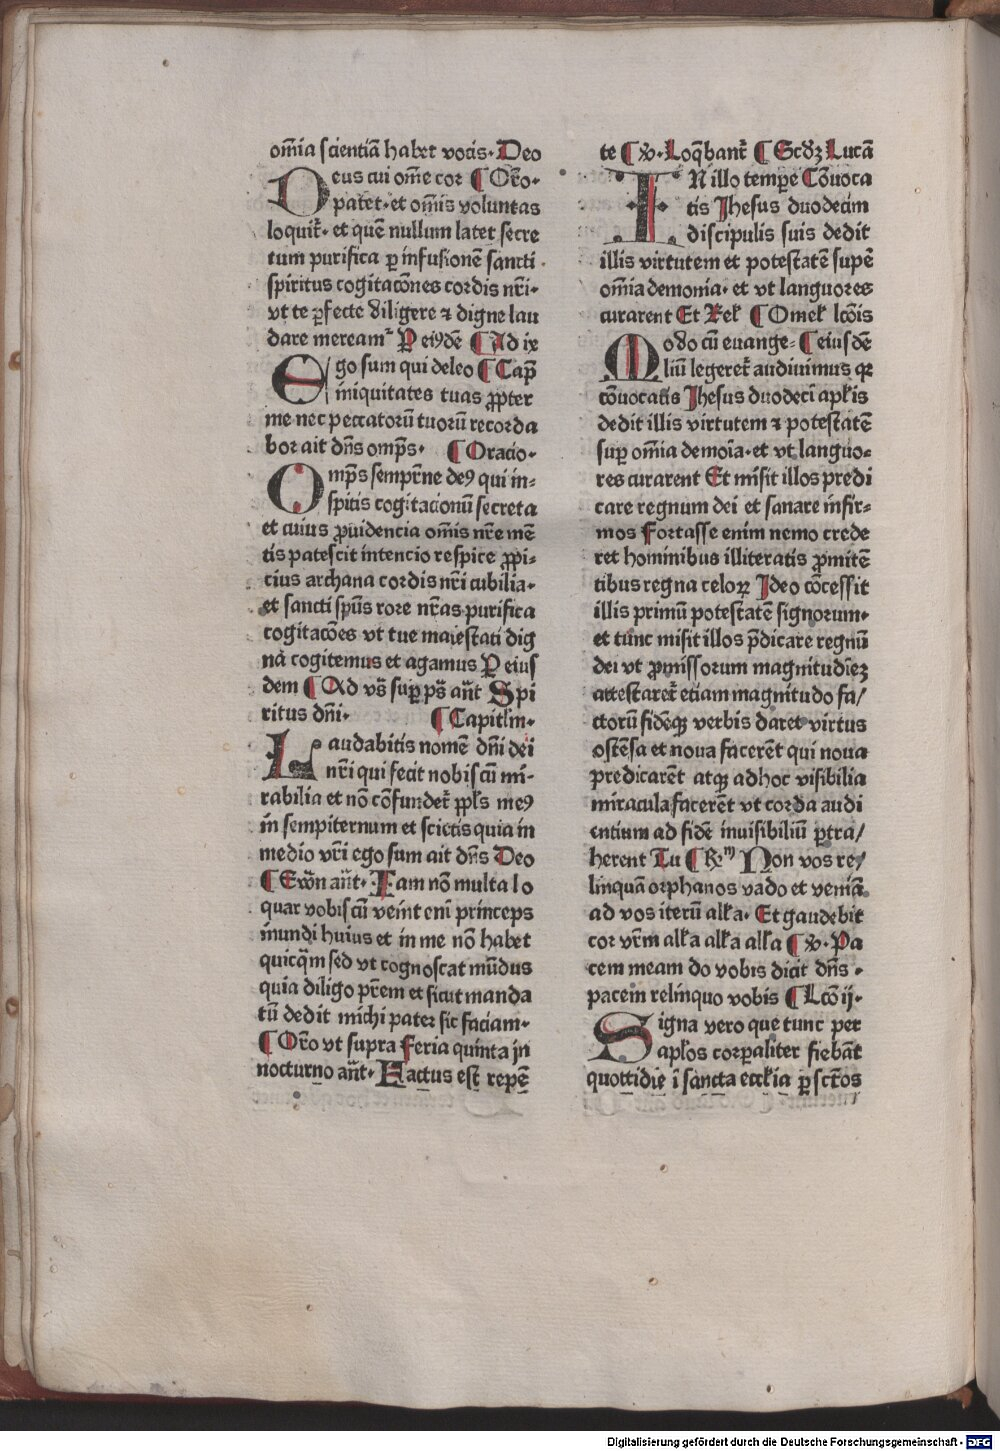 om̄ia scientiā habet vocis· Deo
Deus cui om̄e cor ¶ Or̄o·
patet· et om̄is voluntas
loquit᷑· et quē nullum latet secre
tum purifica ꝑ infusionē sancti
spiritus cogitacōnes cordis nr̄i·
vt te ꝑfecte diligere ⁊ digne lau
dare meream᷑ P eiꝰdē ¶ Ad ix
Ego sum qui deleo ¶ Cap̄
iniquitates tuas ꝓpter
me nec peccatorū tuorū recorda
bor ait dn̄s omp̄s· ¶ Oracio·
Omp̄s sempit̄ne deꝰ qui in-
spitis cogitacionū secreta
et cuius ꝓuidencia om̄is nr̄e mē
tis patescit intencio respice ꝓpi-
cius archana cordis nr̄i cubilia·
et sancti sp̄us rore nr̄as purifica
cogitacōes vt tue maiestati dig
na cogitemus et agamus P eius
dem ¶ Ad vs̄ suꝑ ps̄ an̄t Spi
ritus dn̄i· ¶ Capitl̄m·
Laudabitis nomē dn̄i dei
nr̄i qui fecit nobiscū mi-
rabilia et nō cōfundet᷑ ppl̄s meꝰ
in sempiternum et scietis quia in
medio vr̄i ego sum ait dn̄s Deo
¶ Ewn̄ an̄t· Iam nō multa lo
quar vobiscū veint eni princeps
mundi huius et in me nō habet
quicq̄m sed vt cognoscat mūdus
quia diligo pr̄em et sicut manda
tū dedit michi pater sic faciam·
¶ Or̄o vt supra Feria quinta in
nocturno an̄t· Factus est repē
te ¶ v̄· Loq̄bant᷑ ¶ Scd̄ꝫ Lucā
IN illo tempe Cōuoca
tis Jhesus duodecim
discipulis suis dedit
illis virtutem et potestatē supē
om̄ia demonia· et vt languores
curarent Et Rel̄ ¶ Omel̄ lcōis
Modo cū euange= ¶ eiusdē
liū legeret᷑ audiuimus qꝛ
cōuocatis Jhesus duodeci apl̄is
dedit illis virtutem ⁊ potestatē
suꝑ om̄ia demoīa· et vt languo=
res curarent Et misit illos predi
care regnum dei et sanare infir=
mos Fortasse enim nemo crede
ret hominibus illiteratis ꝓmitē
tibus regna celoꝝ Jdeo cōcessit
illis primū potestatē signorum·
et tunc misit illos p̄dicare regnū
dei vt ꝓmissorum magnitudīeꝫ
attestaret᷑ etiam magnitudo fa/
ctorū fidēqꝫ verbis daret virtus
ostēsa et noua facerēt qui noua
predicarēt atqꝫ adhoc visibilia
miracula facerēt vt corda audi
entium ad fidē inuisibiliū ꝑtra/
herent Tu ¶ R̄ Non vos re/
linquā orphanos vado et veniā
ad vos iterū all̄a· Et gaudebit
cor vr̄m all̄a all̄a all̄a ¶ v̄· Pa
cem meam do vobis dicit dn̄s ·
pacem relinquo vobis ¶ Lcō ij·
Signa vero que tunc per
apl̄os corꝑaliter fiebāt
quottidie ī sancta eccl̄ia ꝑ scr̄os
Digitalisierung gefördert durch die Deutsche Forschungsgemeinschaft - DFG